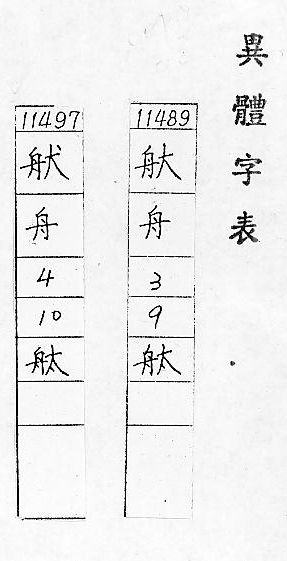 異體字表
11489
舟
3
9
舦
11497
舟
4
10
舦